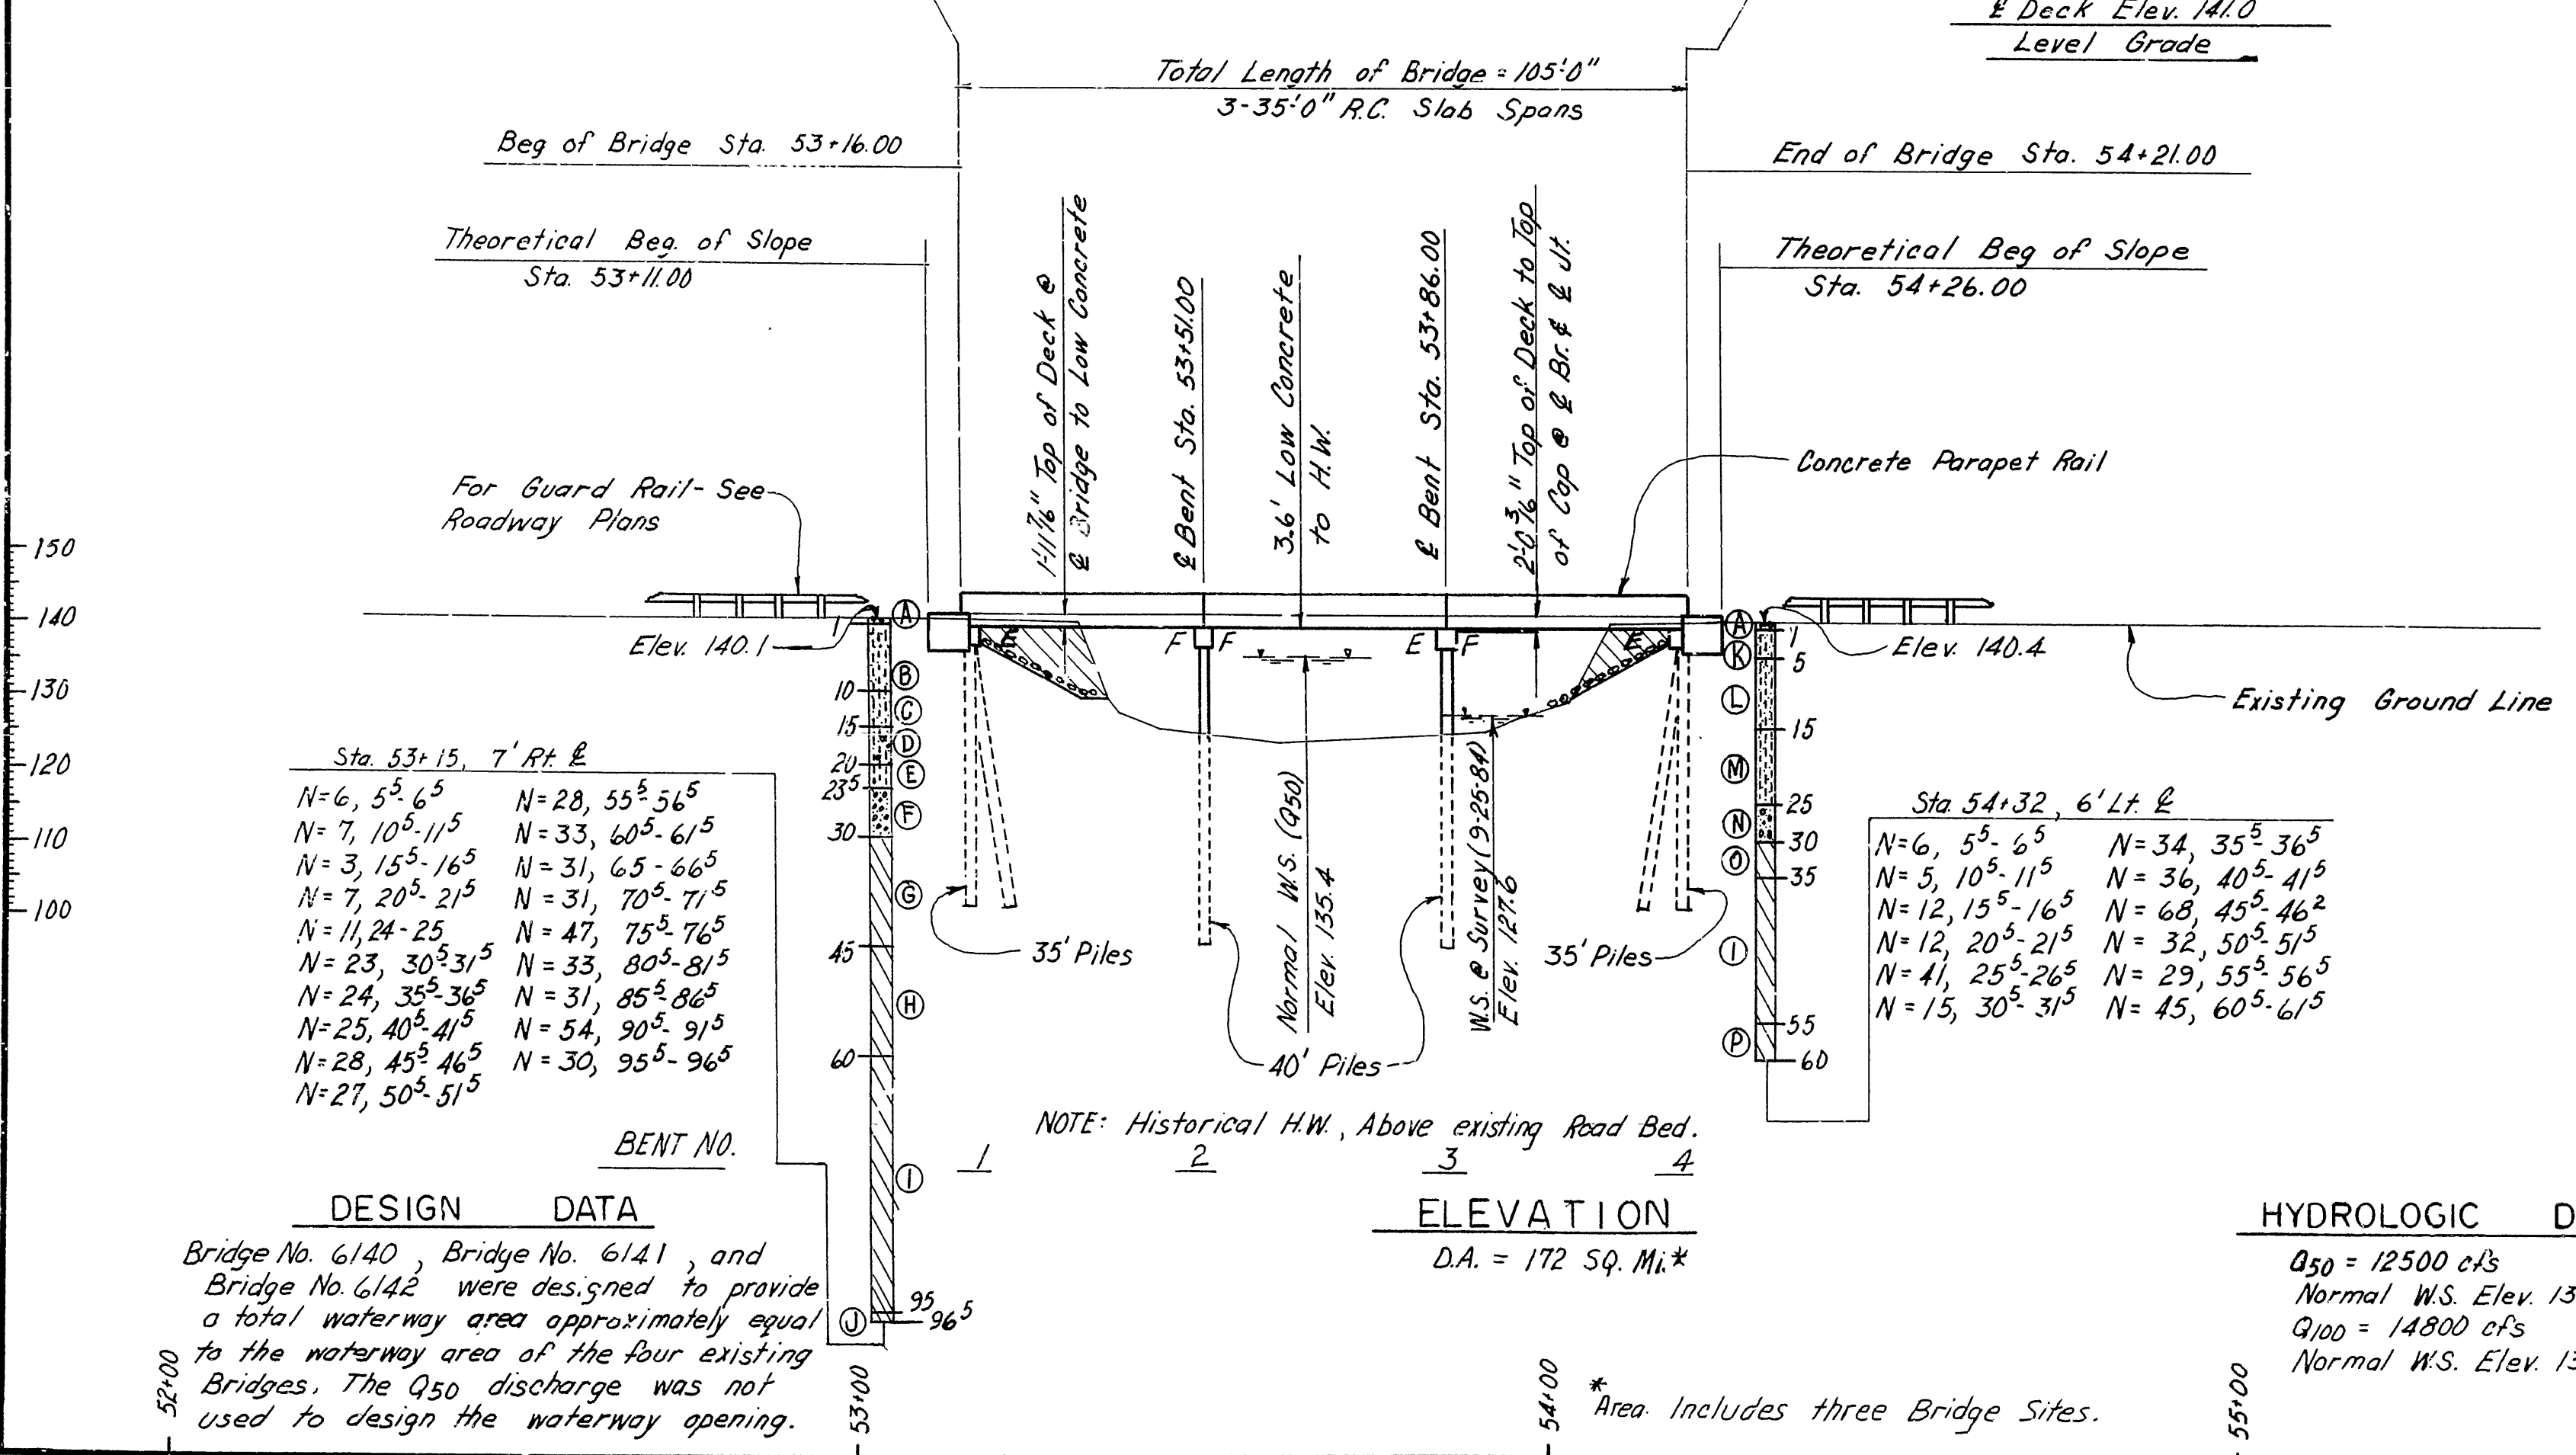 ℄ Deck Elev. 141.0
Level Grade
Total Length of Bridge = 105'-0"
3-35'-0" R.C. Slab Spans
Beg of Bridge Sta. 53+16.00
End of Bridge Sta. 54+21.00
Theoretical Beg. of Slope
Sta. 53+11.00
Theoretical Beg of Slope
Sta. 54+26.00
1'-11 7/16" Top of Deck @
℄ Bridge to Low Concrete
℄ Bent Sta. 53+51.00
3.6' Low Concrete
to H.W.
℄ Bent Sta. 53+86.00
2'-0 3/16" Top of Deck to Top
of Cap @ ℄ Br. & ℄ Jt.
Concrete Parapet Rail
For Guard Rail-See
Roadway Plans
150
140
130
120
110
100
Elev. 140.1
Elev. 140.4
Existing Ground Line
E
F F
E F
E
A
B
C
D
E
F
G
H
I
J
1
10
15
20
23⁵
30
45
60
95
96⁵
A
K
L
M
N
O
I
P
1
5
15
25
30
35
55
60
Sta. 53+15, 7' Rt. ℄
N=6, 5⁵-6⁵ N=28, 55⁵-56⁵
N=7, 10⁵-11⁵ N=33, 60⁵-61⁵
N=3, 15⁵-16⁵ N=31, 65-66⁵
N=7, 20⁵-21⁵ N=31, 70⁵-71⁵
N=11, 24-25 N=47, 75⁵-76⁵
N=23, 30⁵-31⁵ N=33, 80⁵-81⁵
N=24, 35⁵-36⁵ N=31, 85⁵-86⁵
N=25, 40⁵-41⁵ N=54, 90⁵-91⁵
N=28, 45⁵-46⁵ N=30, 95⁵-96⁵
N=27, 50⁵-51⁵
Sta. 54+32, 6' Lt. ℄
N=6, 5⁵-6⁵ N=34, 35⁵-36⁵
N=5, 10⁵-11⁵ N=36, 40⁵-41⁵
N=12, 15⁵-16⁵ N=68, 45⁵-46²
N=12, 20⁵-21⁵ N=32, 50⁵-51⁵
N=41, 25⁵-26⁵ N=29, 55⁵-56⁵
N=15, 30⁵-31⁵ N=45, 60⁵-61⁵
35' Piles
Normal W.S. (Q50)
Elev. 135.4
W.S. @ Survey (9-25-84)
Elev. 127.6
35' Piles
40' Piles
NOTE: Historical H.W., Above existing Road Bed.
BENT NO. 1 2 3 4
DESIGN DATA
Bridge No. 6140, Bridge No. 6141, and
Bridge No. 6142 were designed to provide
a total waterway area approximately equal
to the waterway area of the four existing
Bridges. The Q50 discharge was not
used to design the waterway opening.
ELEVATION
D.A. = 172 SQ. Mi.*
*Area Includes three Bridge Sites.
HYDROLOGIC D
Q50 = 12500 cfs
Normal W.S. Elev. 13
Q100 = 14800 cfs
Normal W.S. Elev. 13
52+00
53+00
54+00
55+00